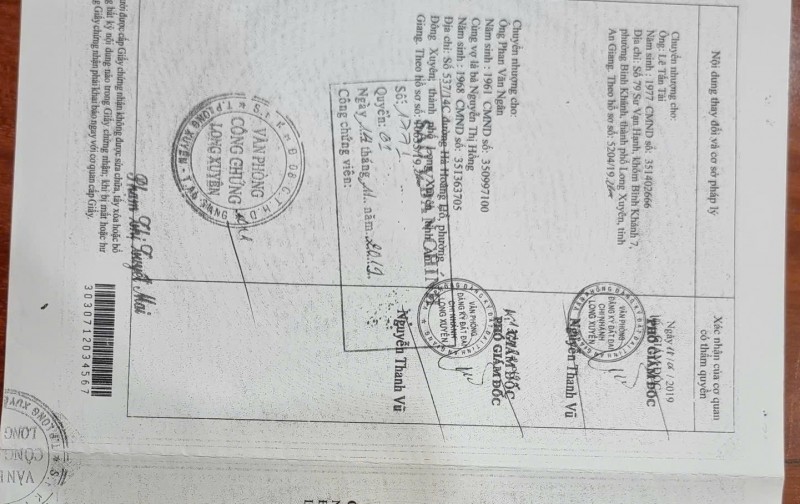 Nội dung thay đổi và cơ sở pháp lý
Xác nhận của cơ quan
có thẩm quyền
Chuyển nhượng cho:
Ông: Lê Tấn Tài
Năm sinh : 1977 CMND số: 351402666
Địa chỉ: Số 79 Sư Vạn Hạnh, khóm Bình Khánh 7,
phường Bình Khánh, thành phố Long Xuyên, tỉnh
An Giang. Theo hồ sơ số: 5204/19.
Ngày / 2019
PHÓ GIÁM ĐỐC
VĂN PHÒNG
ĐĂNG KÝ ĐẤT ĐAI
CHI NHÁNH
LONG XUYÊN
Nguyễn Thanh Vũ
Chuyển nhượng cho:
Ông Phan Văn Ngân
Năm sinh : 1961 CMND số: 350997100
Cùng vợ là bà Nguyễn Thị Hồng
Năm sinh : 1968 CMND số: 351363705
Địa chỉ: Số 537/14C, đường Hà Hoàng Hổ, phường
Đông Xuyên, thành phố Long Xuyên, tỉnh An
Giang. Theo hồ sơ số:
GIÁM ĐỐC
PHÓ GIÁM ĐỐC
VĂN PHÒNG
ĐĂNG KÝ ĐẤT ĐAI
CHI NHÁNH
LONG XUYÊN
Nguyễn Thanh Vũ
Số:
Quyển: 01
Ngày 14 tháng năm 2019
Công chứng viên:
VĂN PHÒNG
CÔNG CHỨNG
LONG XUYÊN
TP.LONG XUYÊN - T. AN GIANG
Phạm Thị Tuyết Mai
được cấp Giấy chứng nhận không được sửa chữa, tẩy xóa hoặc bổ
kỳ nội dung nào trong Giấy chứng nhận; khi bị mất hoặc hư
Giấy chứng nhận phải khai báo ngay với cơ quan cấp Giấy.
3030712034567
VĂN
CÔNG
LONG